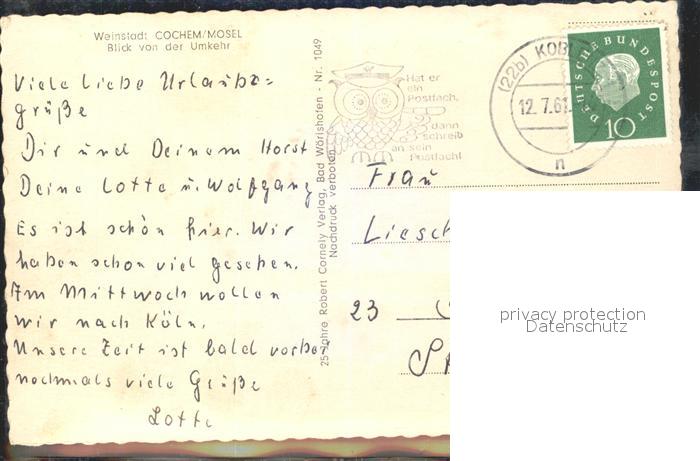 Weinstadt COCHEM/MOSEL
Blick von der Umkehr
Viele liebe Urlaubs=
grüße
Dir und Deinem Horst
Deine Lotte u. Wolfgang
Es ist schön hier. Wir
haben schon viel gesehen.
Am Mittwoch wollen
wir nach Köln.
Unsere Zeit ist bald vorbei
nochmals viele Grüße
Lotte
25 Jahre Robert Cornely Verlag, Bad Wörishofen - Nr. 1049
Nachdruck verboten
Hat er
ein
Postfach,
dann
schreib
an sein
Postfach!
(22b) KOBL
12.7.61
n
DEUTSCHE BUNDESPOST
10
Frau
Liesch
23
St
privacy protection
Datenschutz